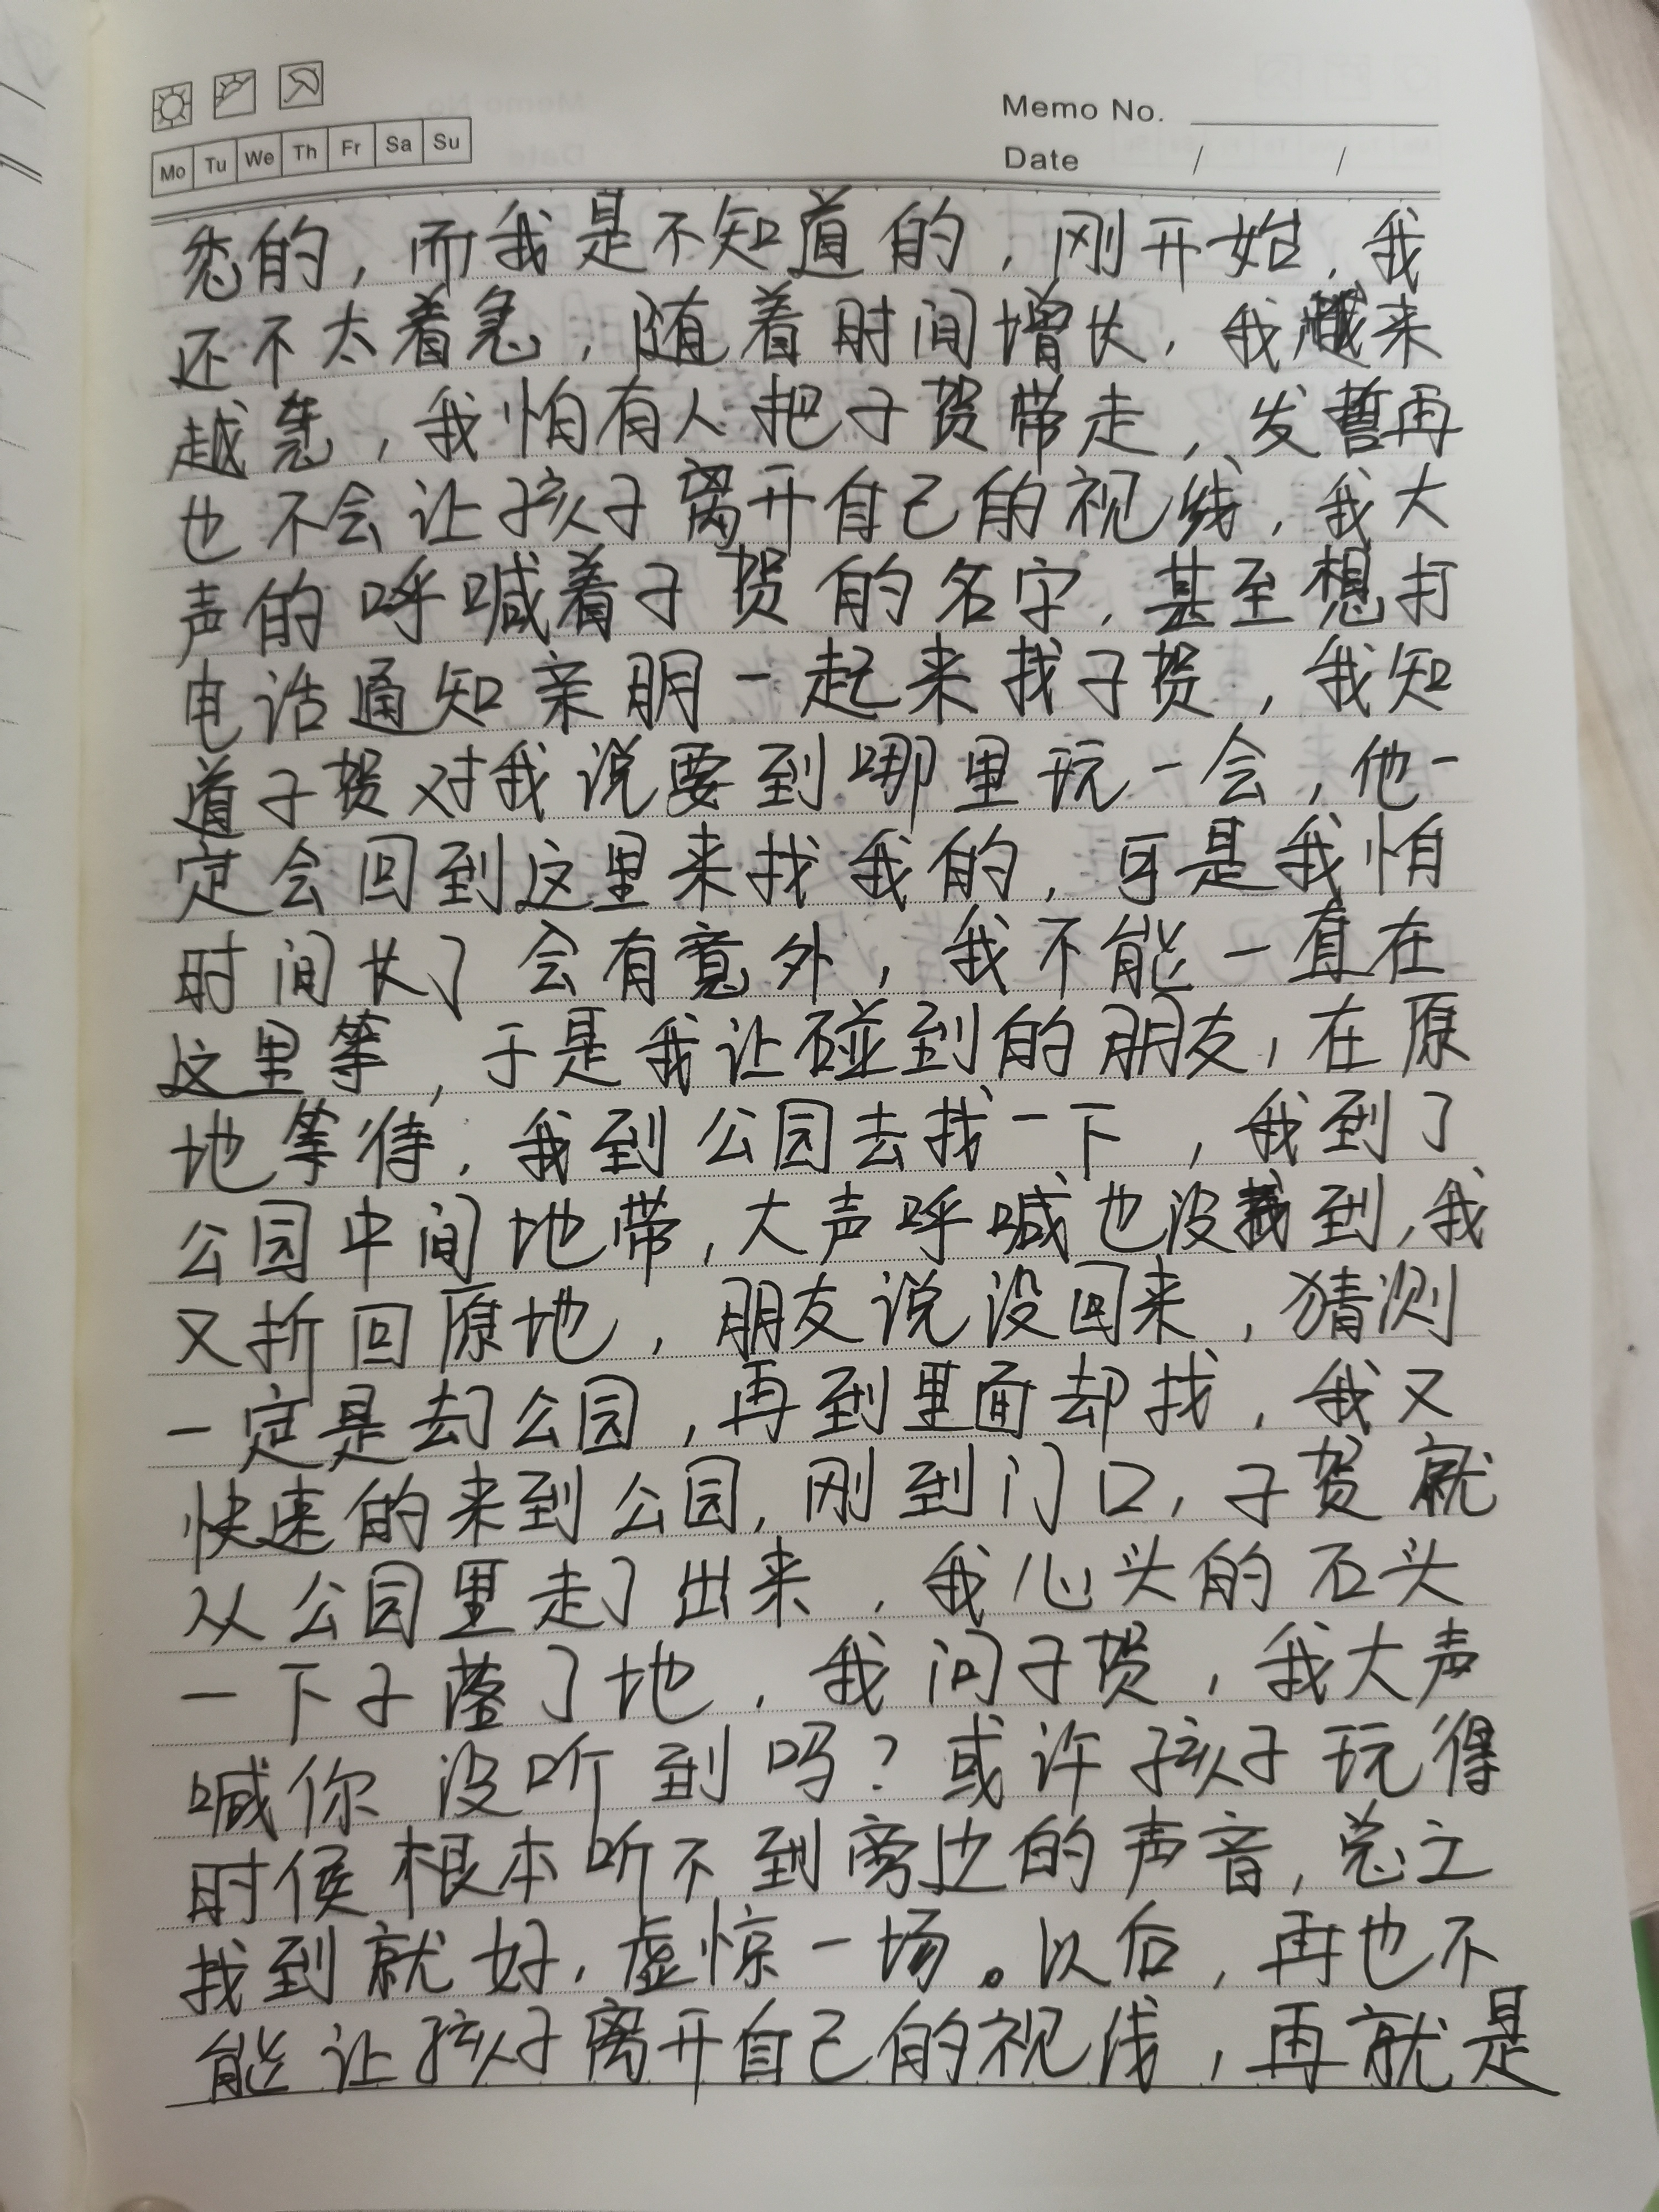 Memo No.
Date / /
Mo Tu We Th Fr Sa Su
悉的，而我是不知道的，刚开始，我
还不太着急，随着时间增长，我越来
越急，我怕有人把子贺带走，发誓再
也不会让孩子离开自己的视线，我大
声的呼喊着子贺的名字，甚至想打
电话通知亲朋一起来找子贺，我知
道子贺对我说要到哪里玩一会，他一
定会回到这里来找我的，可是我怕
时间长了会有意外，我不能一直在
这里等，于是我让碰到的朋友，在原
地等待，我到公园去找一下，我到了
公园中间地带，大声呼喊也没找到，我
又折回原地，朋友说没回来，猜测
一定是去了公园，再到里面却找，我又
快速的来到公园，刚到门口，子贺就
从公园里走了出来，我心头的石头
一下子落了地，我问子贺，我大声
喊你没听到吗？或许孩子玩得
时候根本听不到旁边的声音，总之
找到就好，虚惊一场。以后，再也不
能让孩子离开自己的视线，再就是